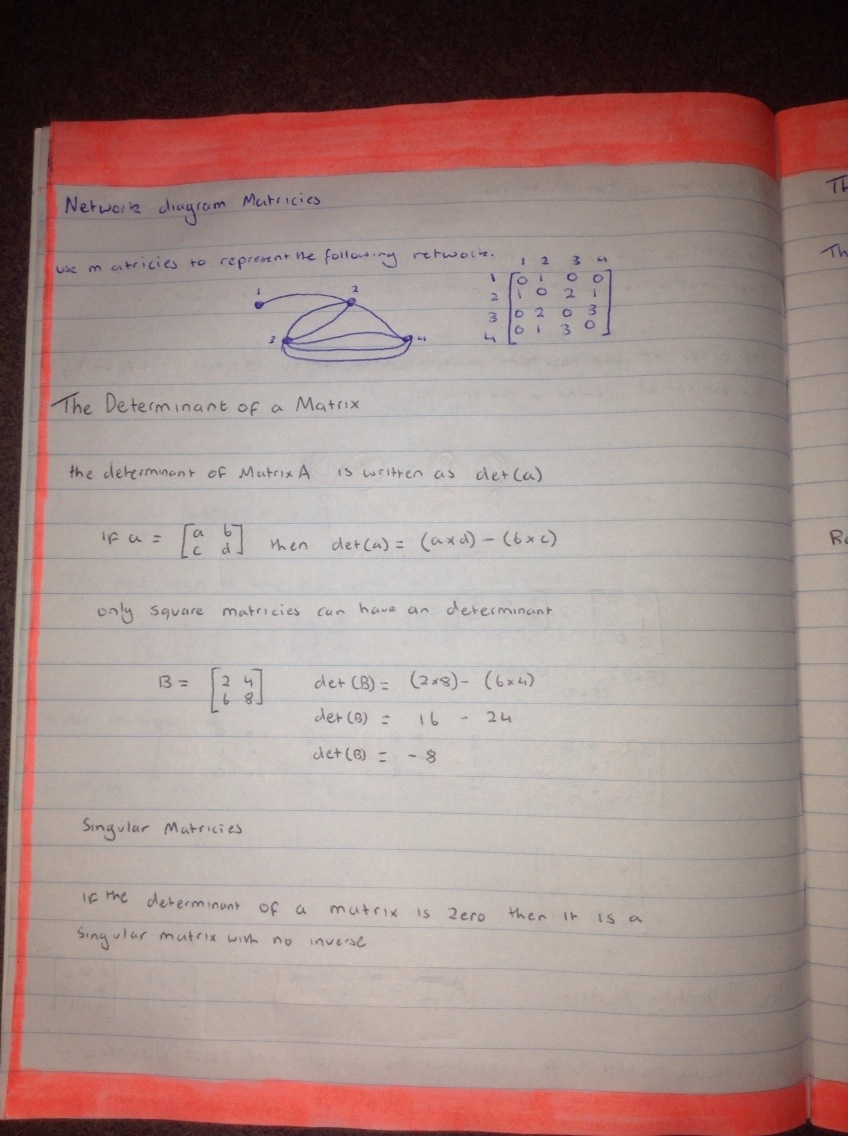 Network diagram Matricies
use matricies to represent the following network.
1 2 3 4
1 [0 1 0 0
2 1 0 2 1
3 0 2 0 3
4 0 1 3 0]
1 2
3 4
The Determinant of a Matrix
the determinant of Matrix A is written as det(a)
if a = [a b
c d] then det(a) = (a×d) - (b×c)
only square matricies can have an determinant
B = [2 4
6 8] det(B) = (2×8) - (6×4)
det(B) = 16 - 24
det(B) = -8
Singular Matricies
if the determinant of a matrix is zero then it is a
singular matrix with no inverse
Th
Th